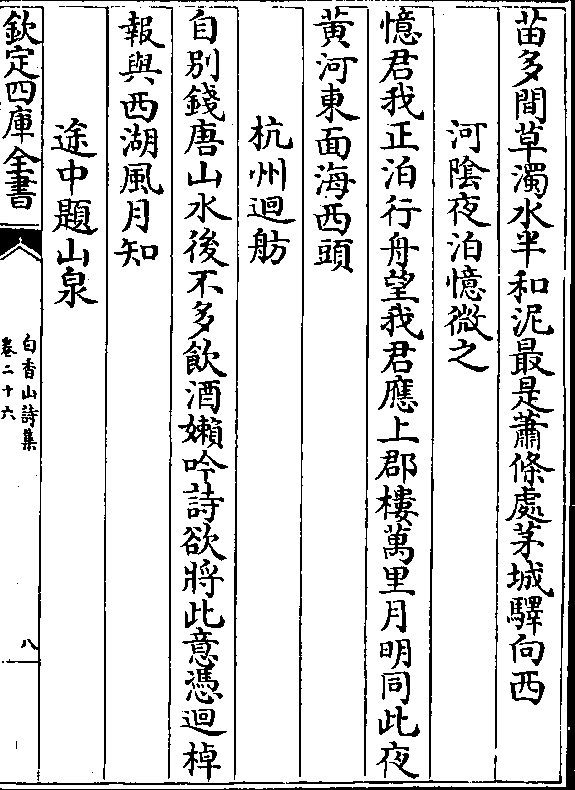 苗多間草濁水半和泥最是蕭條處茅城驛向西
河隂夜泊憶微之
憶君我正泊行舟望我君應上郡樓萬里月明同此夜
黄河東面海西頭
杭州迴舫
自别錢唐山水後不多飲酒嬾吟詩欲將此意憑迴棹
報與西湖風月知
途中題山泉
欽定四庫全書
白香山詩集
卷二十六
八